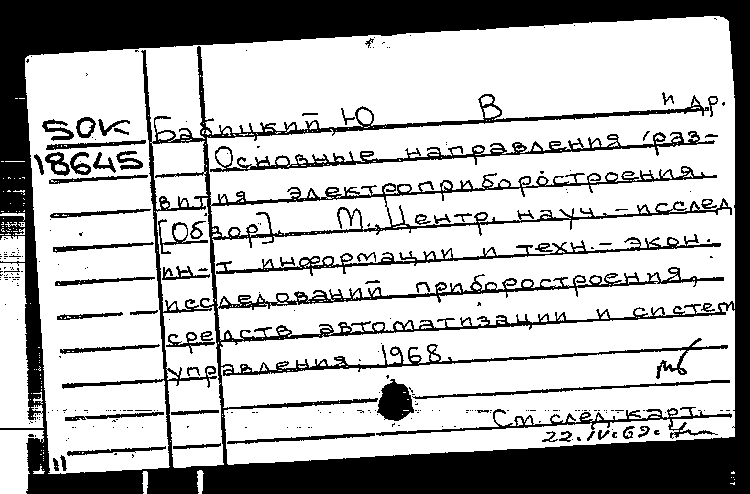 50К
18645
Бабицкий, Ю В и др.
Основные направления раз-
вития электроприборостроения.
[Обзор]. М., Центр. науч.-исслед.
ин-т информации и техн.-экон.
исследований приборостроения,
средств автоматизации и систем
управления, 1968.
См. след. карт.
22.IV.69.